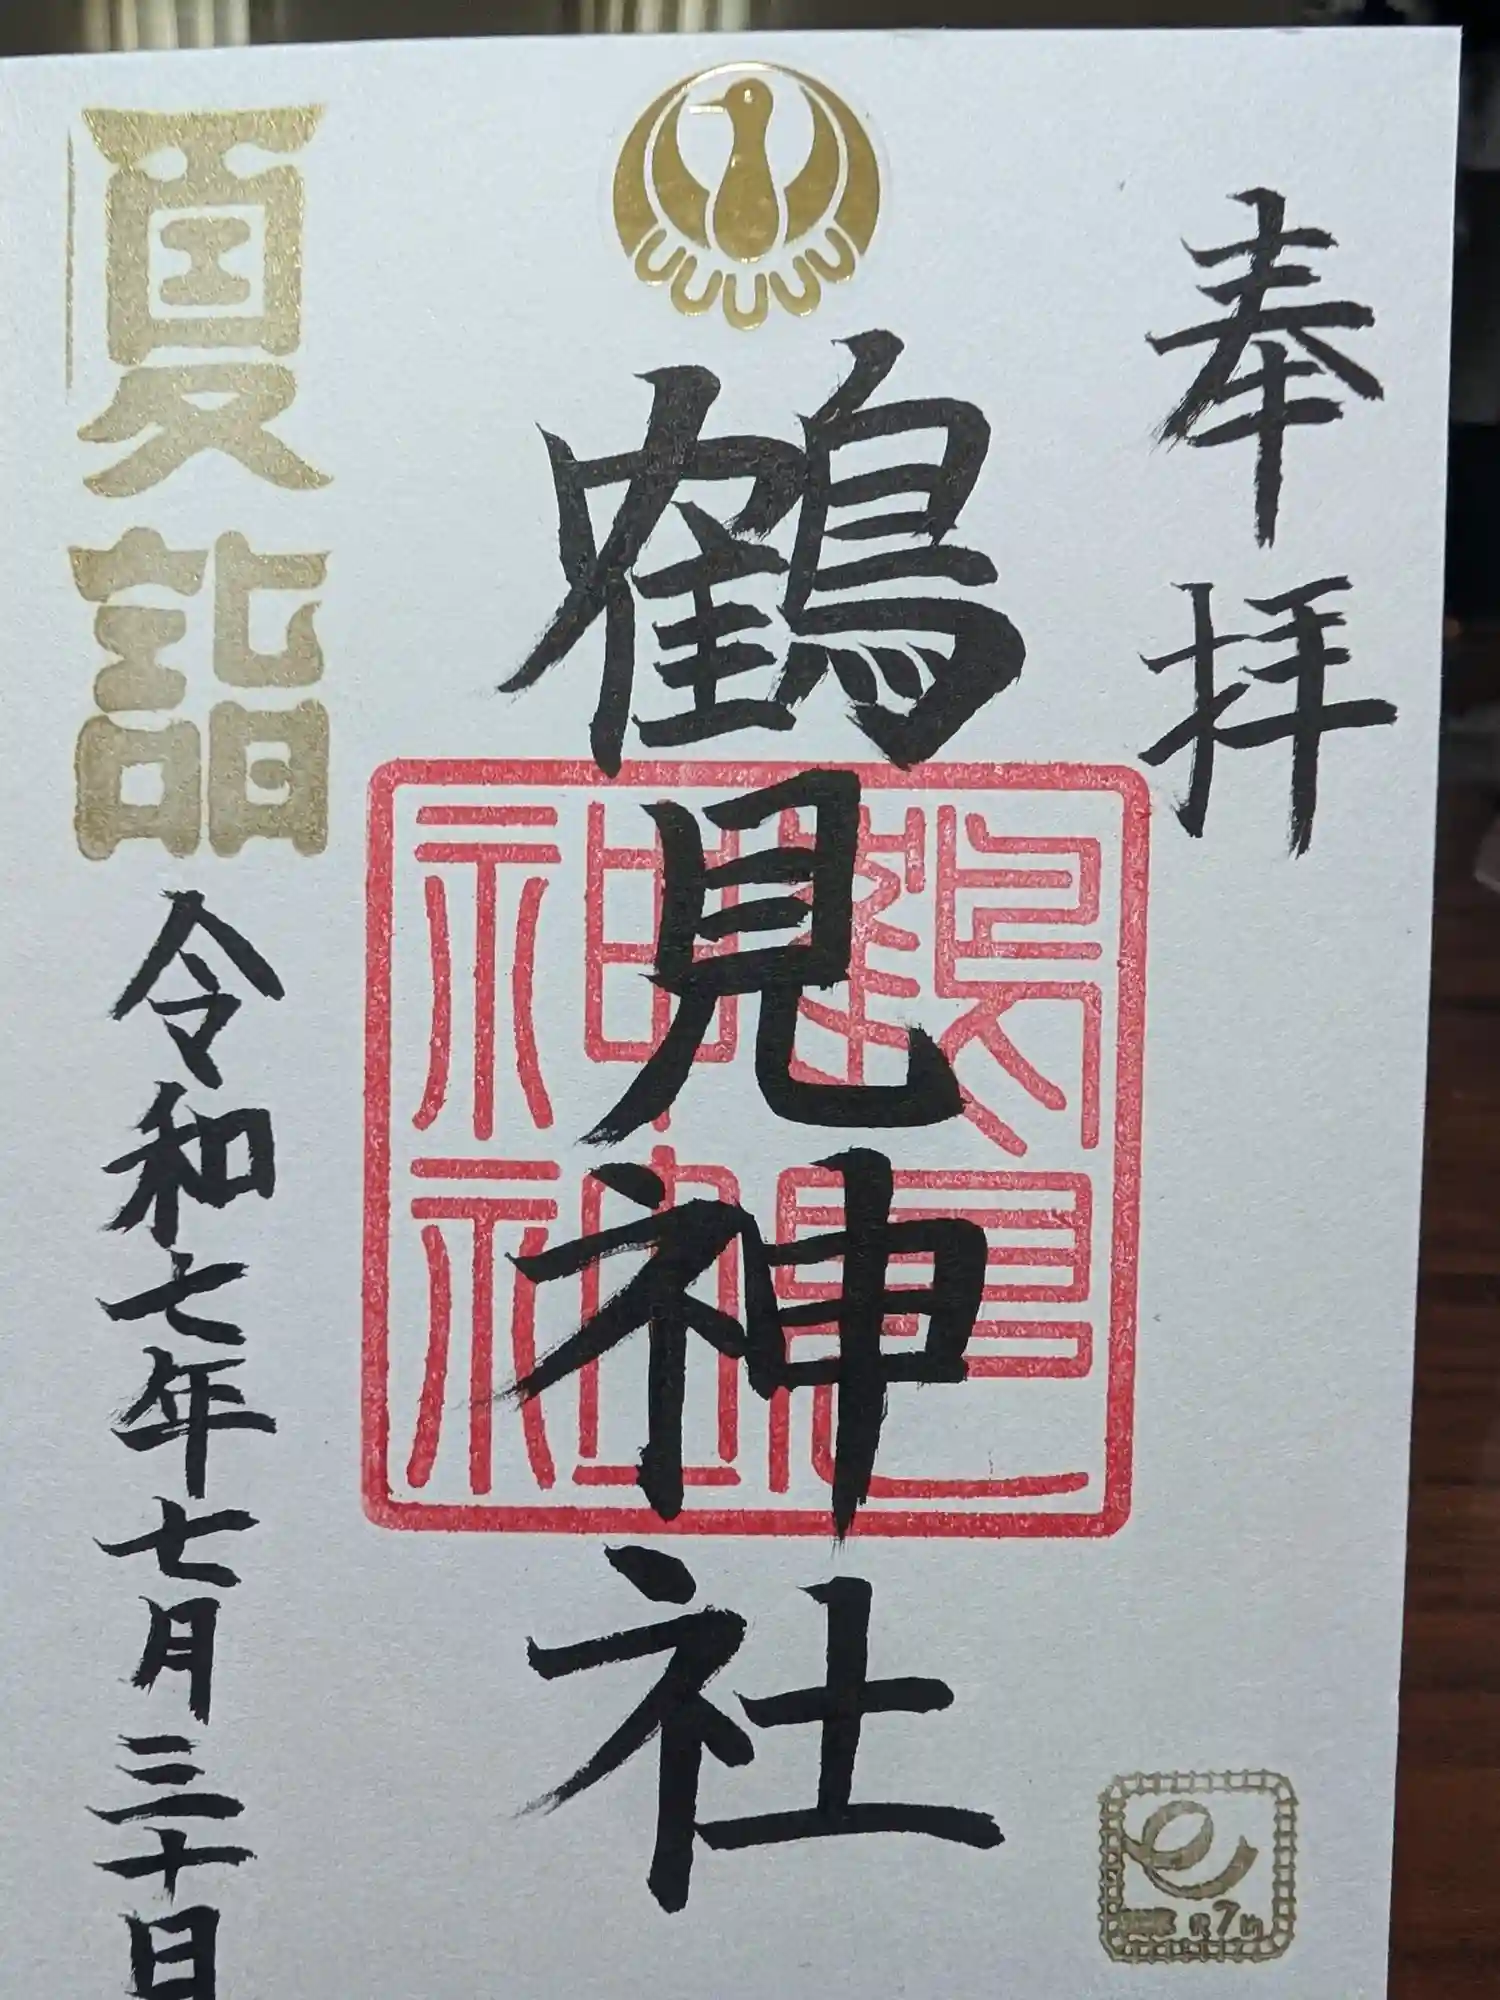 奉拝
鶴見神社
鶴見神社神社
夏詣
令和七年七月三十日
R7